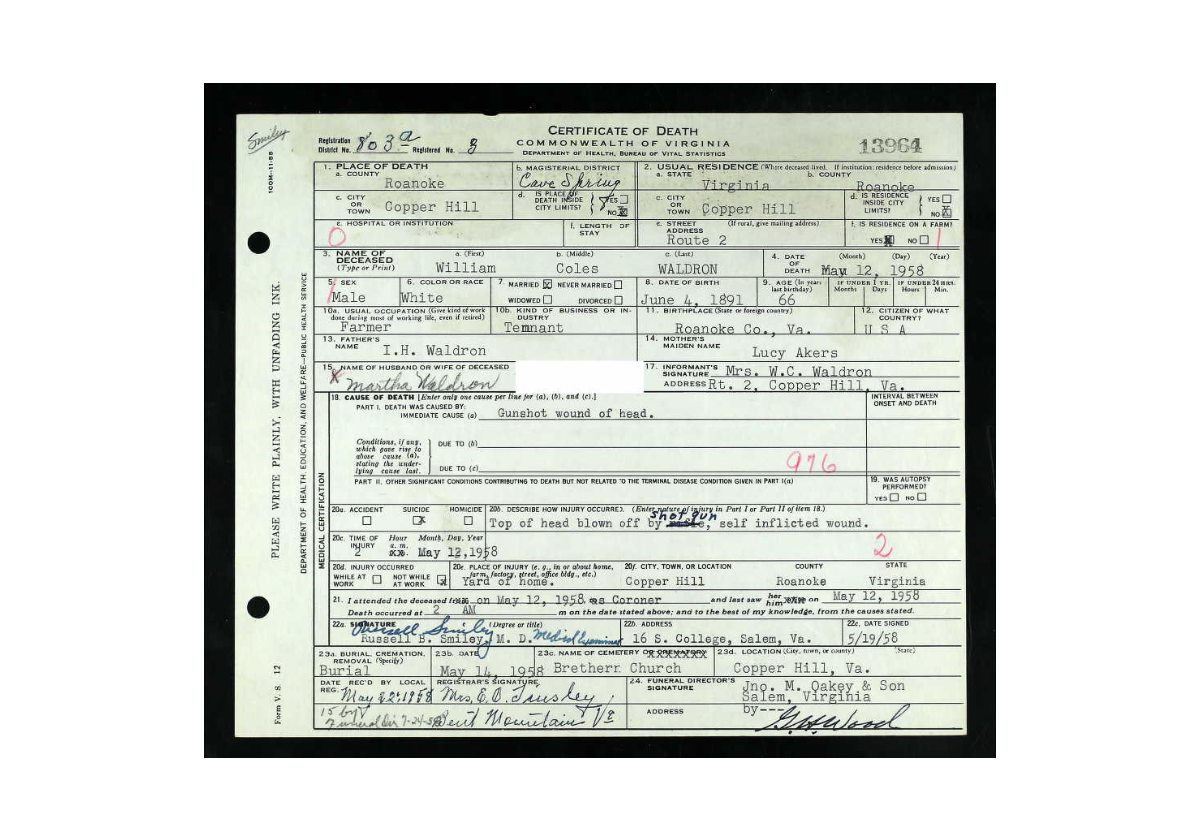 Smiley
100M-11-55
CERTIFICATE OF DEATH
COMMONWEALTH OF VIRGINIA
DEPARTMENT OF HEALTH, BUREAU OF VITAL STATISTICS
13964
Registration District No. 803 a Registered No. 8
1. PLACE OF DEATH
a. COUNTY Roanoke
b. MAGISTERIAL DISTRICT Cave Spring
2. USUAL RESIDENCE (Where deceased lived. If institution: residence before admission)
a. STATE Virginia b. COUNTY Roanoke
c. CITY OR TOWN Copper Hill
d. IS PLACE OF DEATH INSIDE CITY LIMITS? YES NO X
c. CITY OR TOWN Copper Hill
d. IS RESIDENCE INSIDE CITY LIMITS? YES NO X
e. HOSPITAL OR INSTITUTION
0
f. LENGTH OF STAY
e. STREET ADDRESS (If rural, give mailing address)
Route 2
f. IS RESIDENCE ON A FARM?
YES X NO
1
3. NAME OF DECEASED (Type or Print) a. (First) b. (Middle) c. (Last)
William Coles WALDRON
4. DATE OF DEATH (Month) (Day) (Year)
May 12, 1958
5. SEX Male
6. COLOR OR RACE White
7. MARRIED X NEVER MARRIED
WIDOWED DIVORCED
8. DATE OF BIRTH June 4, 1891
9. AGE (In years last birthday) 66
IF UNDER 1 YR. Months Days
IF UNDER 24 HRS. Hours Min.
10a. USUAL OCCUPATION (Give kind of work done during most of working life, even if retired)
Farmer
10b. KIND OF BUSINESS OR INDUSTRY
Temnant
11. BIRTHPLACE (State or foreign country)
Roanoke Co., Va.
12. CITIZEN OF WHAT COUNTRY?
U S A
13. FATHER'S NAME I.H. Waldron
14. MOTHER'S MAIDEN NAME Lucy Akers
15. NAME OF HUSBAND OR WIFE OF DECEASED
X Martha Waldron
17. INFORMANT'S SIGNATURE Mrs. W.C. Waldron
ADDRESS Rt. 2, Copper Hill, Va.
18. CAUSE OF DEATH [Enter only one cause per line for (a), (b), and (c).]
INTERVAL BETWEEN ONSET AND DEATH
PART I. DEATH WAS CAUSED BY:
IMMEDIATE CAUSE (a) Gunshot wound of head.
Conditions, if any, which gave rise to above cause (a), stating the underlying cause last.
DUE TO (b)
DUE TO (c)
976
PART II. OTHER SIGNIFICANT CONDITIONS CONTRIBUTING TO DEATH BUT NOT RELATED TO THE TERMINAL DISEASE CONDITION GIVEN IN PART I(a)
19. WAS AUTOPSY PERFORMED?
YES NO
20a. ACCIDENT SUICIDE X HOMICIDE
20b. DESCRIBE HOW INJURY OCCURRED. (Enter nature of injury in Part I or Part II of item 18.)
shot gun
Top of head blown off by , self inflicted wound.
20c. TIME OF INJURY Hour a. m. Month, Day, Year
2 May 12,1958
2
20d. INJURY OCCURRED
WHILE AT WORK NOT WHILE AT WORK X
20e. PLACE OF INJURY (e. g., in or about home, farm, factory, street, office bldg., etc.)
Yard of home.
20f. CITY, TOWN, OR LOCATION COUNTY STATE
Copper Hill Roanoke Virginia
21. I attended the deceased on May 12, 1958 as Coroner and last saw her him on May 12, 1958
Death occurred at 2 AM m on the date stated above; and to the best of my knowledge, from the causes stated.
22a. SIGNATURE (Degree or title)
Russell Smiley
Russell B. Smiley, M. D. Medical Examiner
22b. ADDRESS
16 S. College, Salem, Va.
22c. DATE SIGNED
5/19/58
23a. BURIAL, CREMATION, REMOVAL (Specify)
Burial
23b. DATE
May 14, 1958
23c. NAME OF CEMETERY OR CREMATORY
Bretherr Church
23d. LOCATION (City, town, or county) (State)
Copper Hill, Va.
DATE REC'D BY LOCAL REG. May 22, 1958
REGISTRAR'S SIGNATURE
Mrs. E.O. Tinsley
Bent Mountain Va
24. FUNERAL DIRECTOR'S SIGNATURE
Jno. M. Oakey & Son
Salem, Virginia
ADDRESS
by--- G.H. Wood
15 by
Funeral Dir 7-24-58
PLEASE WRITE PLAINLY, WITH UNFADING INK.
DEPARTMENT OF HEALTH, EDUCATION, AND WELFARE—PUBLIC HEALTH SERVICE
MEDICAL CERTIFICATION
Form V. S. 12